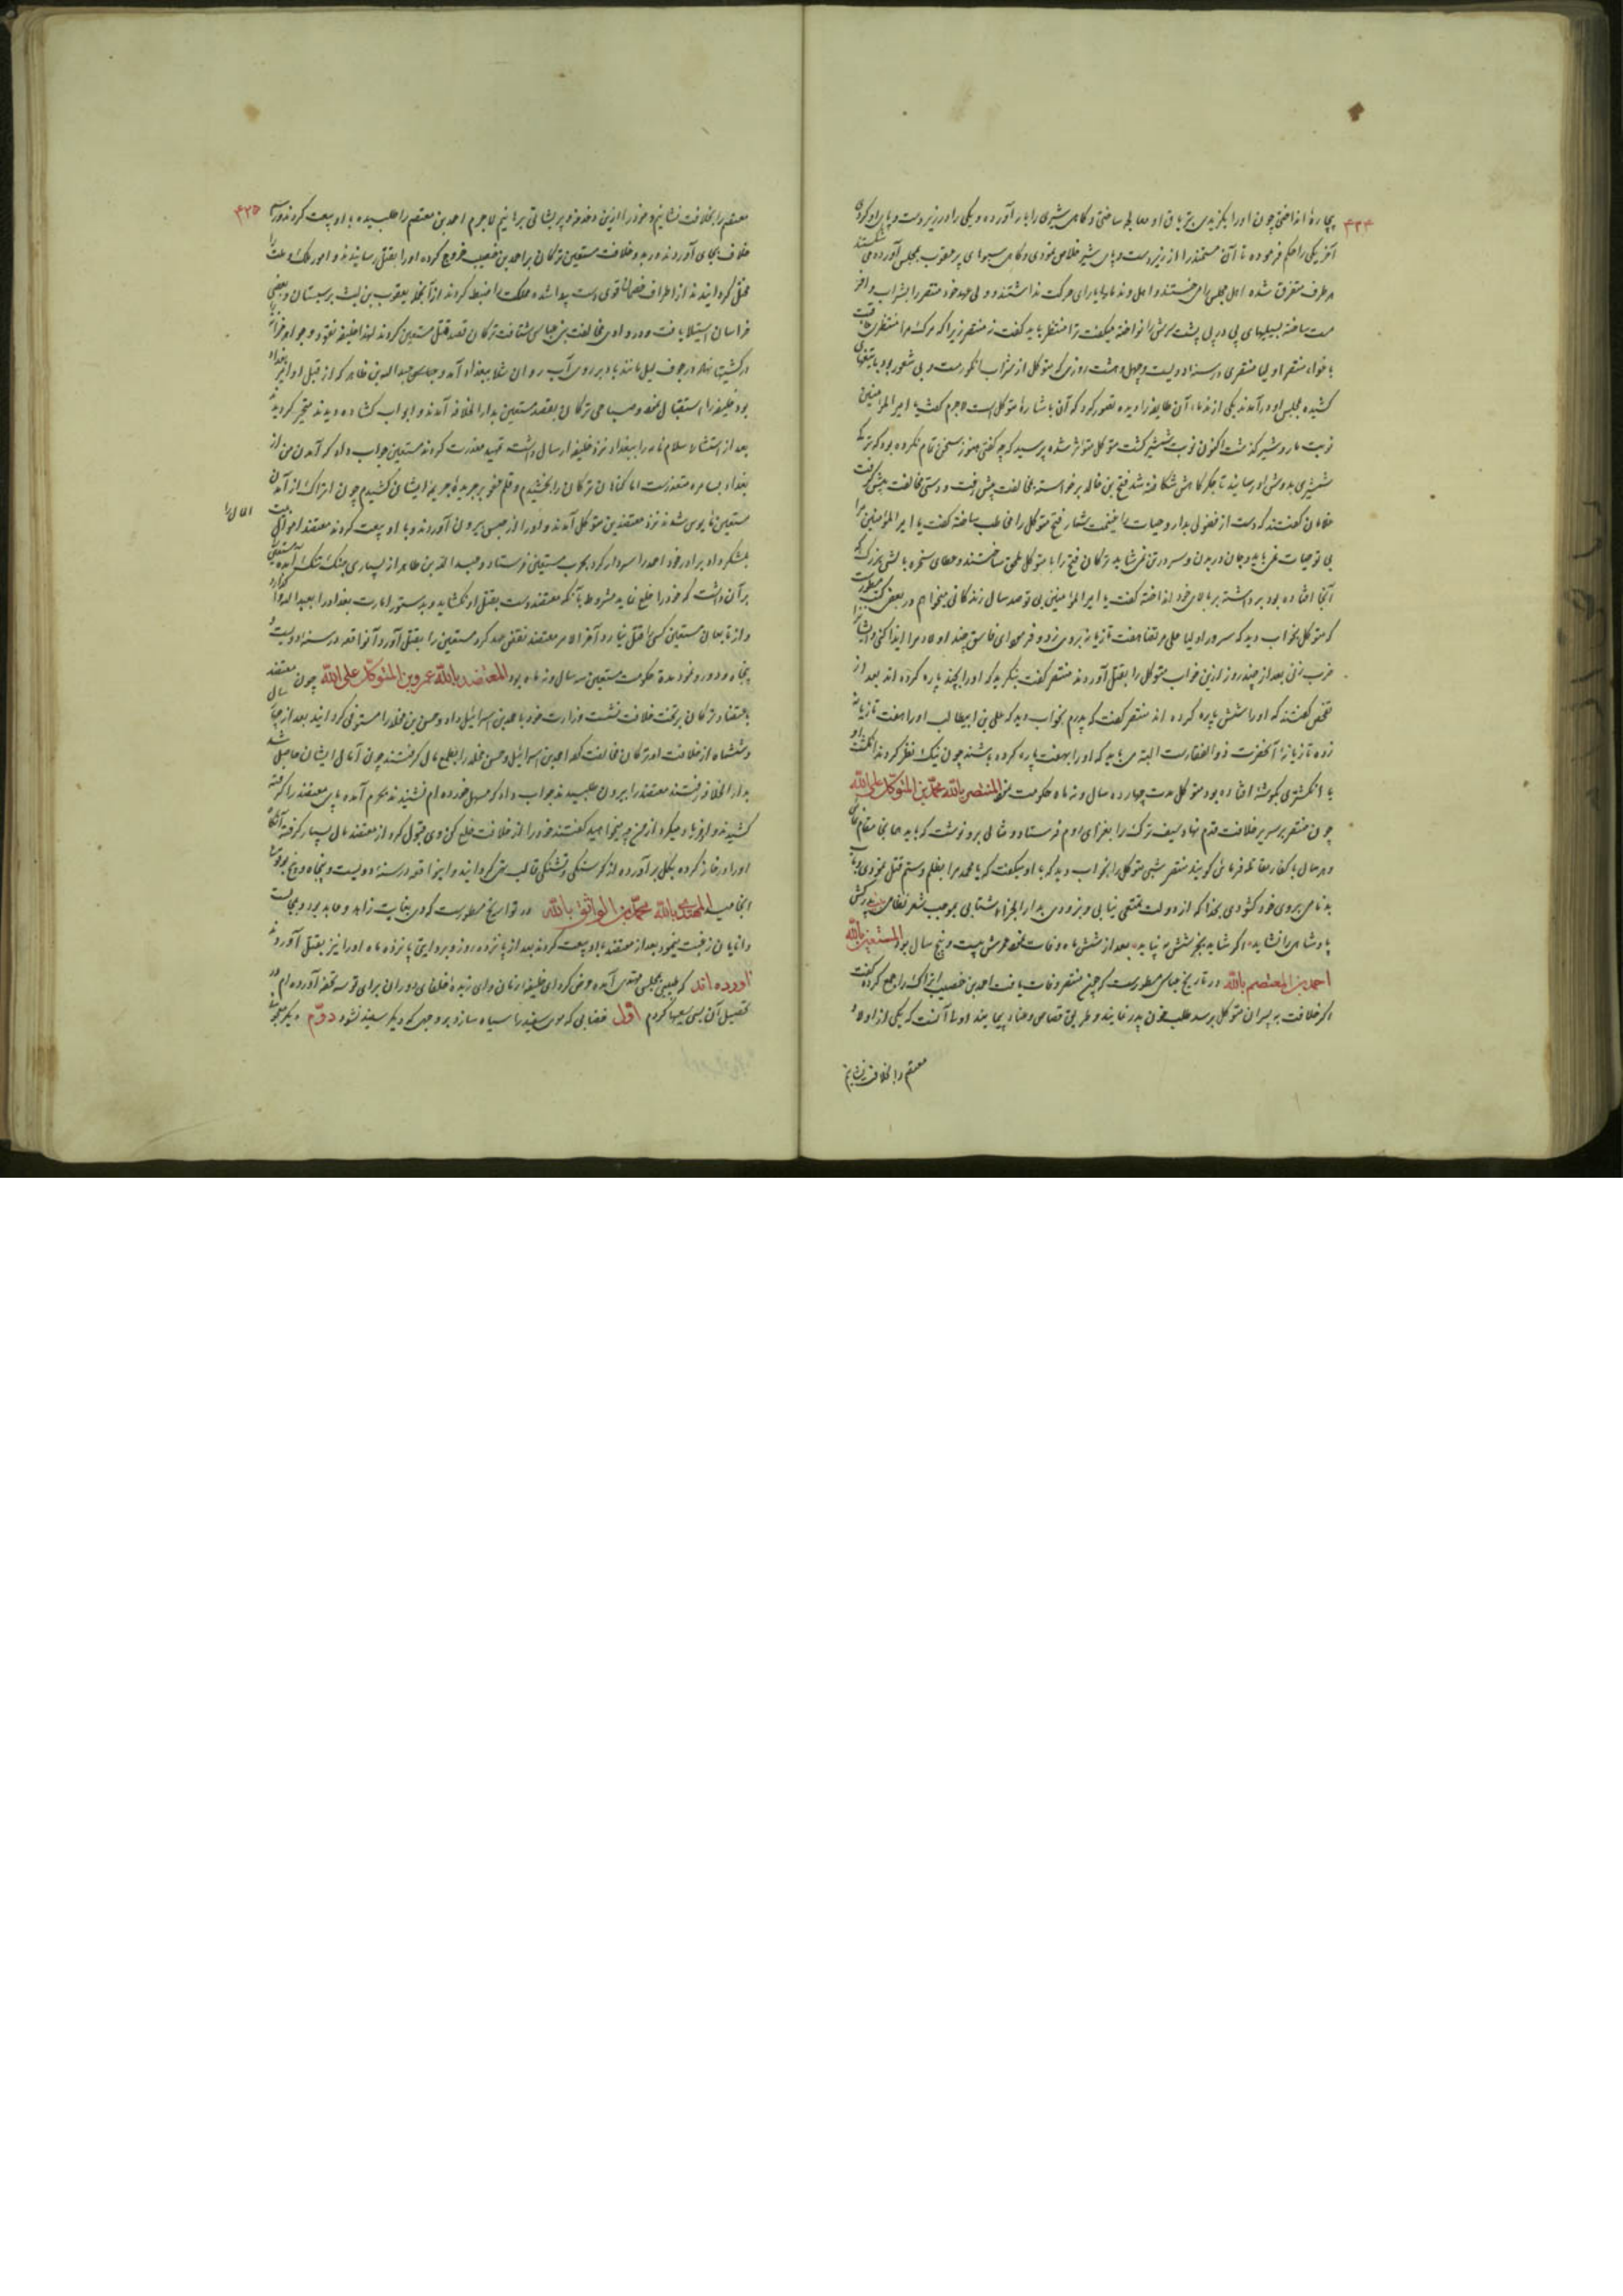 ۴۳۴
بیچاره انداختی چون او را بگزیدی بتریاق او معالجه ساختی و گاهی شیری را بار آورده و یکی را در زیر دست و پای او کردی
آخر یکی را حکم فرموده تا آن مستمند را از زیر دست و پای شیر خلاص نمودی و گاهی سبوهای پر عقرب بمجلس آورده می شکستند
هر طرف متفرق شده اهل مجلس را می خستند و اهل و ندما را یارای حرکت نداشتند و ولی عهد خود منتصر را بشراب وافر
مست ساخته بسیلیهای پی در پی پشت سرش را نواخته میگفت ترا منتظر باید گفت نه منتصر زیرا که مرگ مرا منتظری
منتصر اولیا منتصری در سنه دویست و چهل و هشت روزی که متوکل از شراب انگور مست و بی شعور بود با تیغهای
کشیده بمجلس او درآمدند یکی از ندما آن طایفه را دیده تصور کرد که آن باشاره متوکل است لاجرم گفت یا امیر المؤمنین
نوبت مار و شیر گذشت اکنون نوبت شمشیر گشت متوکل متوهم شده پرسید که چه گفتی هنوز سخن تمام نکرده بود که ترکی
شمشیری بدوش او رسانید تا جگرگاهش شکافته شد فتح بن خاقان برخاسته بمخالفت پیش رفت و دستی مخالفت پیش گرفت
گفتند که دست از فضولی بدار و حیات را غنیمت شمار فتح متوکل را مخاطب ساخته گفت یا امیر المؤمنین مرا
بی تو حیات نمی باید و جان در بدن و سر در تن نمی شاید ترکان فتح را با متوکل ملحق ساختند و سخره بالشی بزرگ که
آنجا افتاده بود برداشته بر بالای خود انداخته گفت یا امیر المؤمنین بی تو صد سال زندگانی میخواهم در بعضی کتب مسطورست
که متوکل بخواب دید که سرور اولیا علی مرتضا هفت تازیانه بروی زد و فرمود ای فاسق چند اولاد مرا ایذا کنی و ایشان را
ضرب زنی بعد از چند روز از این خواب متوکل را بقتل آوردند منتصر گفت بنگرید که او را بچند پاره کرده اند بعد از
تفحص گفتند که او را شش پاره کرده اند منتصر گفت که پدرم بخواب دید که علی بن ابیطالب او را هفت تازیانه
زده تازیانه آنحضرت ذو الفقارست البته می باید که او را بهفت پاره کرده باشند چون نیک نظر کردند انگشت او
با انگشتری بگوشه افتاده بود متوکل مدت چهارده سال و نه ماه حکومت نمود المنتصر بالله محمد بن المتوکل علی الله
چون منتصر بر سریر خلافت قدم نهاد سیف ترک را بغزای روم فرستاد و مثالی برو نوشت که باید همانجا مقام نمای
و هر سال با کفار مقاتله فرمای گویند منتصر شبی متوکل را بخواب دید که با او میگفت که یا محمد مرا بظلم و ستم قتل نمودی
بدنامی بروی خود گشودی بخدا که از دولت تمتعی نیابی و بزودی بدار الجزا شتابی بموجب شعر نظامی پدر کش
پادشاهی را نشاید اگر شاید بجز شش مه نپاید بعد از شش ماه وفات نمود عمرش بیست و پنج سال بود المستعین بالله
احمد بن المعتصم بالله در تاریخ عباسی مسطورست که چون منتصر وفات یافت احمد بن خصیب اتراک را جمع کرده گفت
اگر خلافت به پسران متوکل برسد طلب خون پدر نمایند و طریق قصاص و عناد پیمایند اولی آنست که یکی از اولاد
معتصم را بخلافت نشانیم
۴۳۵
معتصم را بخلافت نشانیم و خود را ازین دغدغه و پریشانی برهانیم لاجرم احمد بن معتصم را طلبیده با او بیعت کردند و رسم
خلاف بجای آوردند و در بدو خلافت مستعین ترکان بر احمد بن خصیب خروج کرده او را بقتل رسانیدند و امور ملک و ملت را
مختل گردانیدند از اطراف خصمان قوی دست پیدا شده مملکت را ضبط کردند از آنجمله یعقوب بن لیث بر سیستان و بعضی
خراسان استیلا یافت و در وادی مخالفت بنی عباس شتافت ترکان قصد قتل مستعین کردند لهذا خلیفه نقود و جواهر خزانه
در کشتیها نهاده در جوف لیل مانند باد بر روی آب روان شد ببغداد آمد و عبد الله بن طاهر که از قبل او امیر بغداد
بود خلیفه را استقبال نمود صباحی ترکان بقصد مستعین بدار الخلافه آمدند و ابواب گشاده دیدند متحیر گردیدند
بعد از استشاره سلام نامه را ببغداد نزد خلیفه ارسال داشت تمهید معذرت کردند مستعین جواب داد که آمدن من از
بغداد بسامره متعذرست اما گناهان ترکان را بخشیدم و قلم عفو بر جریده جریمه ایشان کشیدم چون اتراک از آمدن
مستعین مأیوس شدند نزد معتضد بن متوکل آمدند و او را از حبس بیرون آوردند و با او بیعت کردند معتضد اموالی
بلشکر داد برادر خود احمد را سردار کرد بحرب مستعین فرستاد و عبید الله بن طاهر از بسیاری جنگ بتنگ آمده مستعین را
بر آن داشت که خود را خلع نماید مشروط بآنکه معتضد دست بقتل او نگشاید و بدستور امارت بغداد را بعبید الله واگذارد
و از تابعان مستعین کسی را قتل نیارد و آخر الامر معتضد نقض عهد کرد مستعین را بقتل آورد و آنواقعه در سنه دویست و
پنجاه و دو رو نمود مدت حکومت مستعین سه سال و نه ماه بود المعتضد بالله عمرو بن المتوکل علی الله چون معتضد
باعتضاد ترکان بر تخت خلافت نشست وزارت خود باحمد بن اسرائیل داد و حسن بن مخلد را مستوفی گردانید بعد از چهار سال
و ششماه از خلافت او ترکان مخالفت نموده احمد بن اسرائیل و حسن مخلد را بطمع مال گرفتند چون آمال ایشان حاصل نشد
بدار الخلافه رفتند معتضد را بیرون طلبیدند جواب داد که مسهل خورده ام نشنیدند بحرم آمده پای معتضد را گرفته
کشیدند و او فریاد میکرد از من چه میخواهید گفتند خود را از خلافت خلع کن وی قبول کرد از معتضد مال بسیار گرفته آنگاه
او را در خانه کرده بگل برآورده از گرسنگی و تشنگی قالب تهی گردانید و اینواقعه در سنه دویست و پنجاه و پنج بوقوع
انجامید المهتدی بالله محمد بن الواثق بالله در تواریخ مسطورست که وی بغایت زاهد و عابد بود و بمجالست
دانایان رغبت مینمود بعد از معتضد با او بیعت کردند بعد از پانزده روز و بروایتی پانزده ماه او را نیز بقتل آوردند
آورده اند که طبیبی بمجلس مهتدی آمده عرض کرد ای خلیفه زمان و ای زبده خلفای دوران برای تو سه تحفه آورده ام در
تحصیل آن بسی سعیها کردم اول خضابی که موی سفید را سیاه سازد بر وجهی که دیگر سفید نشود دوم دیگر معجونی